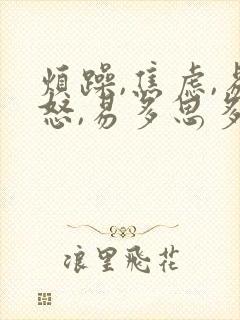 烦躁,焦虑,易
怒,易多思多
浪里飛花